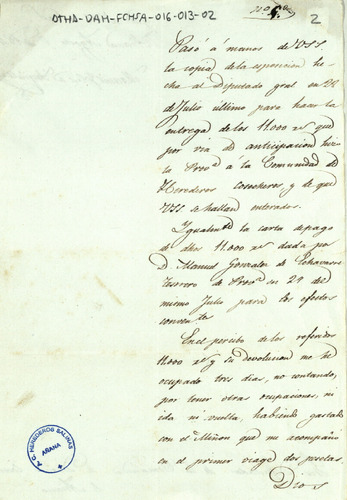 OTHA-DAH-FCHSA-016-013-02
2
Pasó á manos de VSS.
la copia de la esposicion he
cha al Diputado gral en 22
de Julio último para hacer la
entrega de los 11.000 rs que
por via de anticipacion hizo
la Provª á la Comunidad de
Herederos cosecheros y de que
VSS se hallan enterados.
Igualmte la carta de pago
de dhos 11.000 rs dada por
D. Manuel Gonzalez de Echavarri
Tesorero de Provª en 29 del
mismo Julio para los efectos
convenites
En el percibo de los referidos
11000 rs y su devolucion me he
ocupado tres dias, no contando,
por tener otras ocupaciones, ni
ida ni vuelta, habiendo gastado
con el Miñon que me acompaño
en el primer viage dos pesetas.
Dios
A. C. HEREDEROS SALINAS
ARANA